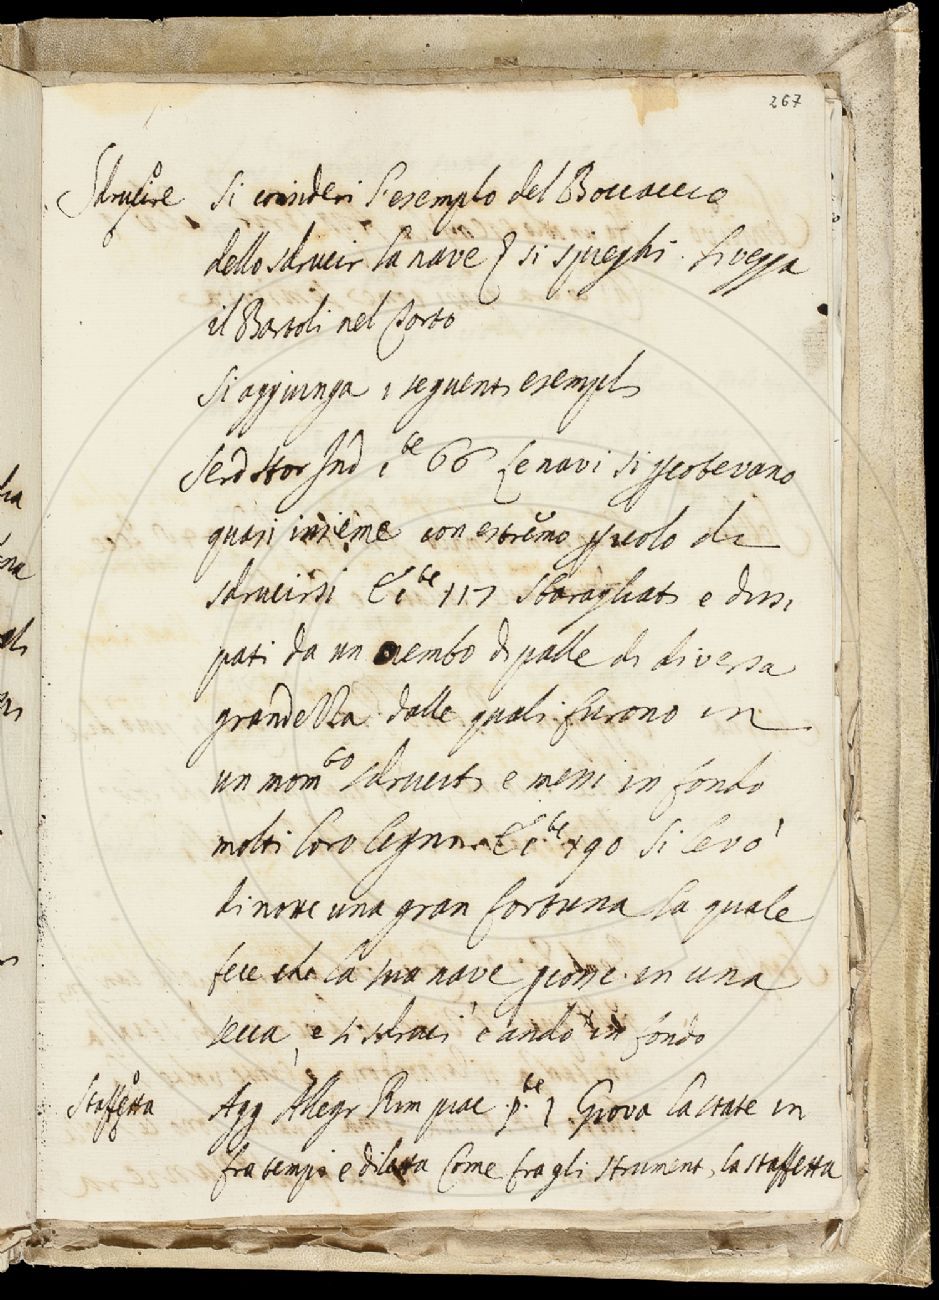 267
Sdruscire Si consideri l'esempio del Boccaccio
dello sdrucir la nave e si spieghi. Si vegga
il Bartoli nel Torto
Si aggiunga i seguenti esempli
Serd Stor Ind 66 Le navi si percotevano
quasi insieme con estremo pericolo di
sdrucirsi E 117 sbaragliati e dissi
pati da un nembo di palle di diversa
grandezza dalle quali furono in
un mom.to sdruciti e messi in fondo
molti loro legni E 190 Si levò
di notte una gran fortuna la quale
fece che la sua nave percosse in una
secca, e si sdrucì e andò in fondo
Staffetta Agg Allegr Rim piac p. 7 Giova la state in
fra tempi e diletta Come fra gli strumenti la staffetta